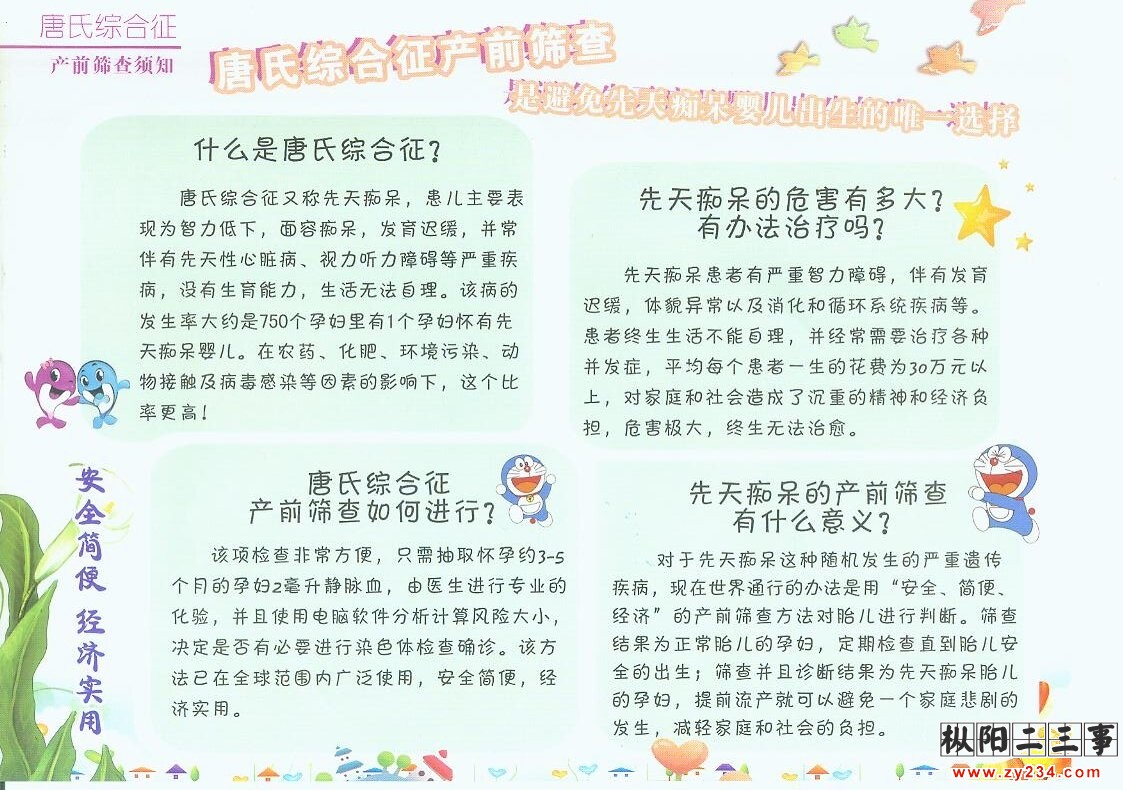 唐氏综合征
产前筛查须知
唐氏综合征产前筛查
是避免先天痴呆婴儿出生的唯一选择
什么是唐氏综合征？
唐氏综合征又称先天痴呆，患儿主要表
现为智力低下，面容痴呆，发育迟缓，并常
伴有先天性心脏病、视力听力障碍等严重疾
病，没有生育能力，生活无法自理。该病的
发生率大约是750个孕妇里有1个孕妇怀有先
天痴呆婴儿。在农药、化肥、环境污染、动
物接触及病毒感染等因素的影响下，这个比
率更高！
先天痴呆的危害有多大？
有办法治疗吗？
先天痴呆患者有严重智力障碍，伴有发育
迟缓，体貌异常以及消化和循环系统疾病等。
患者终生生活不能自理，并经常需要治疗各种
并发症，平均每个患者一生的花费为30万元以
上，对家庭和社会造成了沉重的精神和经济负
担，危害极大，终生无法治愈。
安全简便 经济实用
唐氏综合征
产前筛查如何进行？
该项检查非常方便，只需抽取怀孕约3-5
个月的孕妇2毫升静脉血，由医生进行专业的
化验，并且使用电脑软件分析计算风险大小，
决定是否有必要进行染色体检查确诊。该方
法已在全球范围内广泛使用，安全简便，经
济实用。
先天痴呆的产前筛查
有什么意义？
对于先天痴呆这种随机发生的严重遗传
疾病，现在世界通行的办法是用“安全、简便、
经济”的产前筛查方法对胎儿进行判断。筛查
结果为正常胎儿的孕妇，定期检查直到胎儿安
全的出生；筛查并且诊断结果为先天痴呆胎儿
的孕妇，提前流产就可以避免一个家庭悲剧的
发生，减轻家庭和社会的负担。
枞阳二三事
www.zy234.com